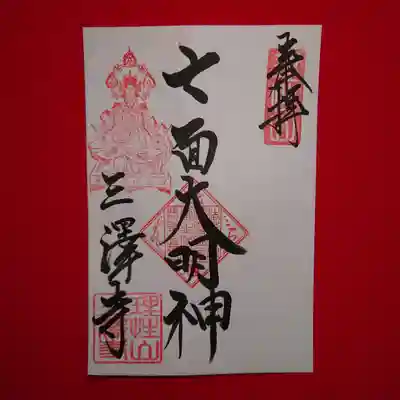 奉拝
七面大明神
三澤寺
理性山